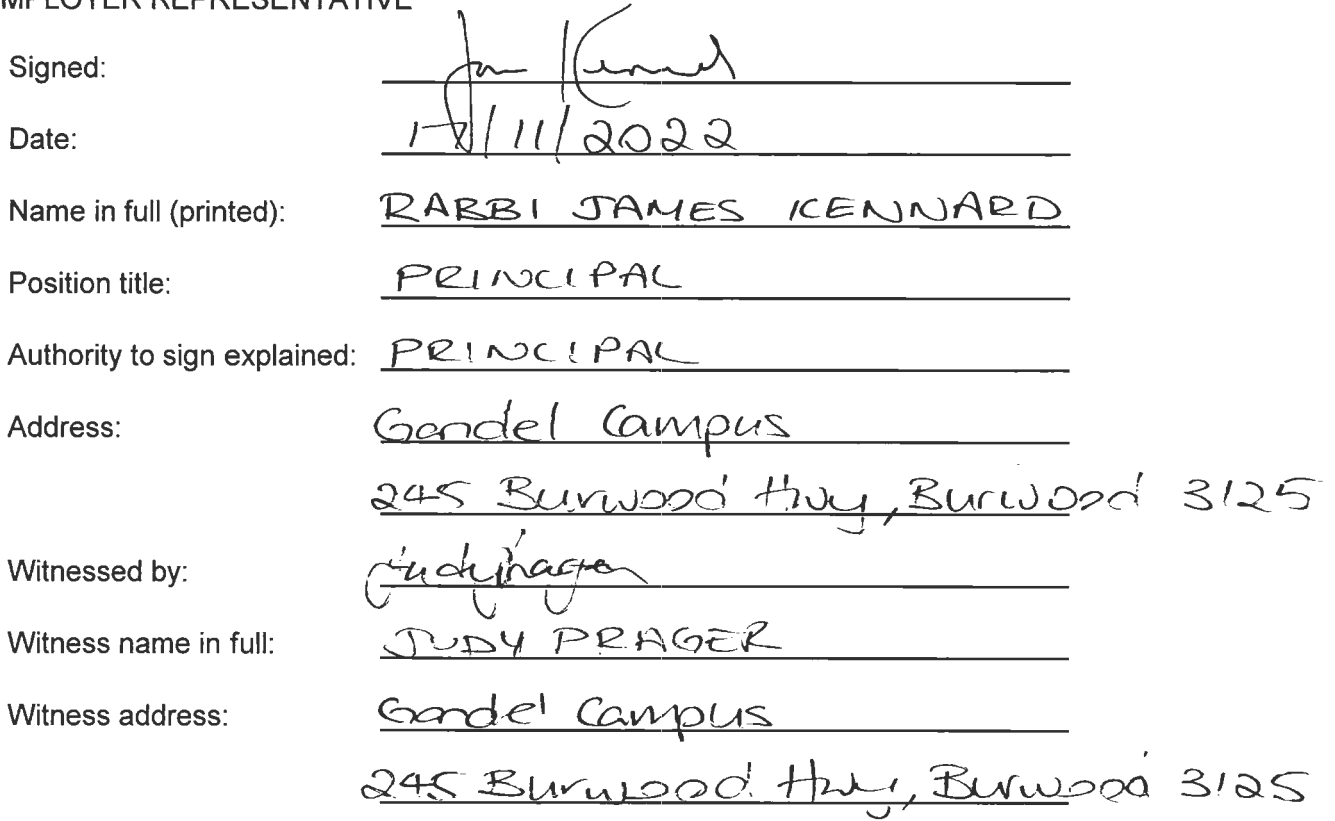 MPLOYER REPRESENTATIVE
Signed:
Date: 17/11/2022
Name in full (printed): RABBI JAMES KENNARD
Position title: PRINCIPAL
Authority to sign explained: PRINCIPAL
Address: Gandel Campus
245 Burwood Hwy, Burwood 3125
Witnessed by: Judy Prager
Witness name in full: JUDY PRAGER
Witness address: Gandel Campus
245 Burwood Hwy, Burwood 3125